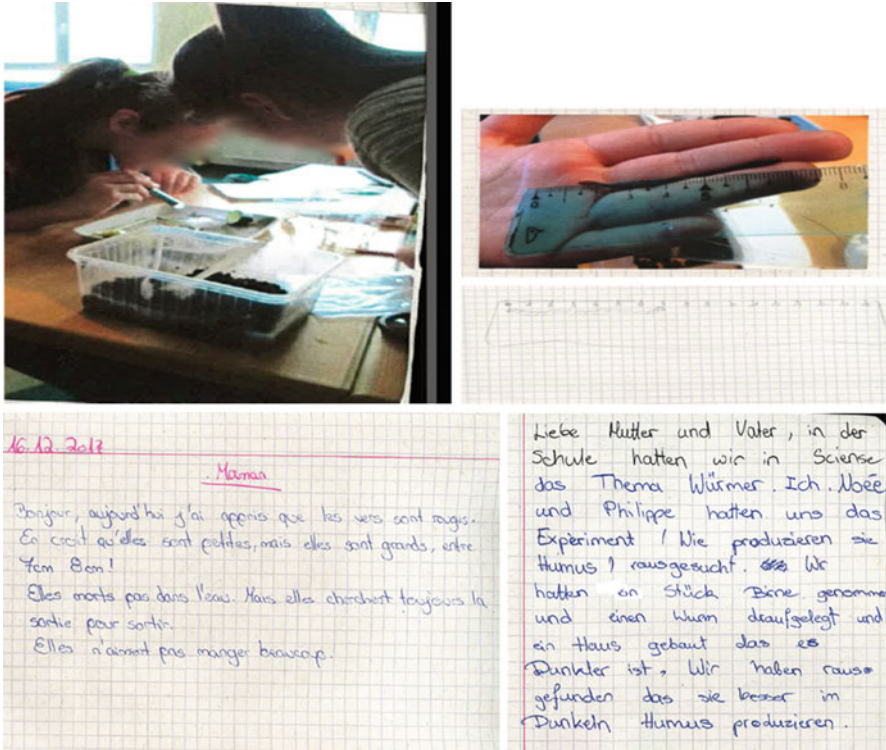 16.12.2017
Maman
Bonjour, aujourd'hui j'ai appris que les vers sont rouges.
En croit qu'elles sont petites, mais elles sont grands, entre
7cm 8cm!
Elles morts pas dans l'eau. Mais elles cherchent toujours la
sortie pour sortir.
Elles n'aiment pas manger beaucop.
Liebe Mutter und Vater, in der
Schule hatten wir in Sciense
das Thema Würmer. Ich. Noée
und Philippe hatten uns das
Experiment / Wie produzieren sie
Humus / rausgesucht. Wr
hatten en Stück Birne genomme
und einen Wurm draufgelegt und
ein Haus gebaut das es
Dunkler ist. Wir haben raus
gefunden das sie besser im
Dunkeln Humus produzieren.